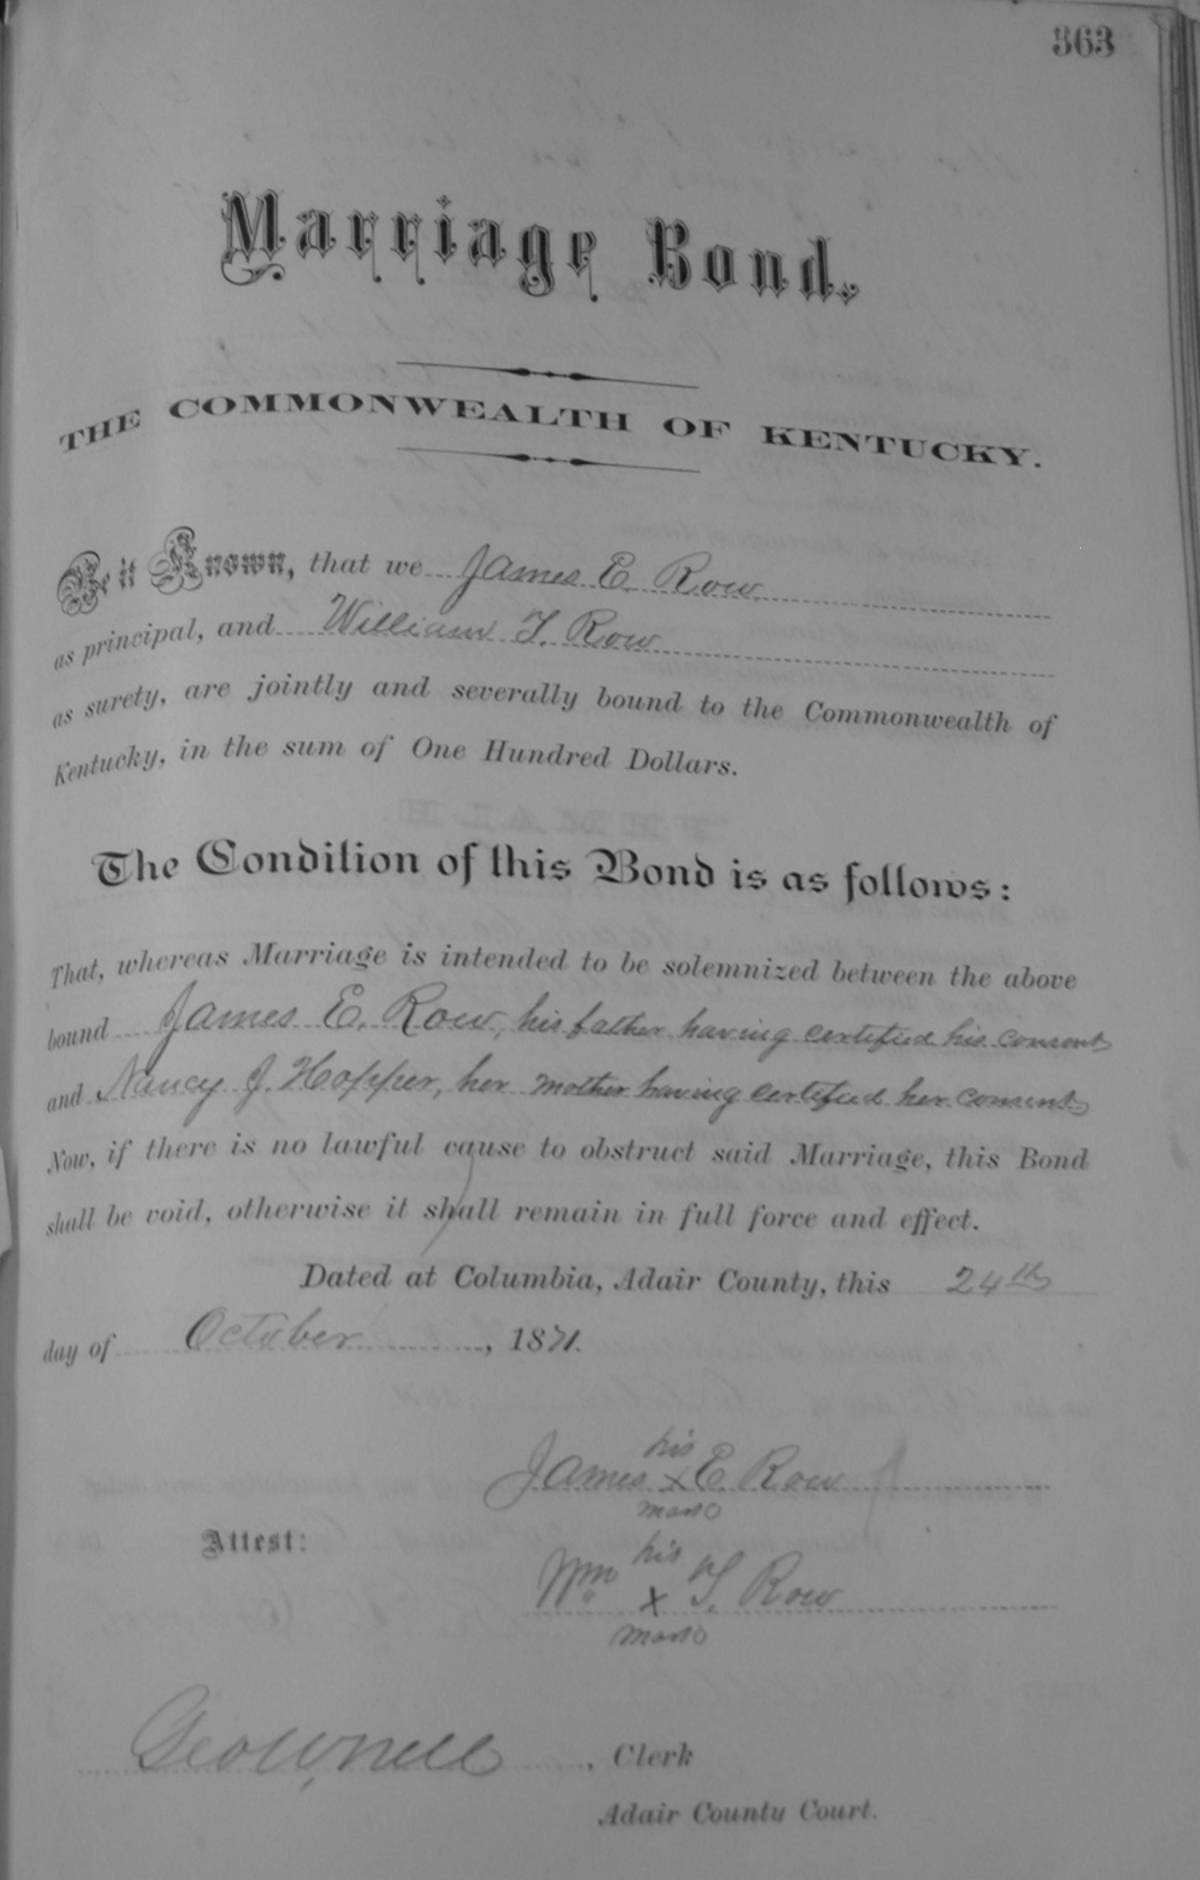 363
Marriage Bond.
THE COMMONWEALTH OF KENTUCKY.
Be it Known, that we James E. Row
as principal, and William T. Row
as surety, are jointly and severally bound to the Commonwealth of
Kentucky, in the sum of One Hundred Dollars.
The Condition of this Bond is as follows:
That, whereas Marriage is intended to be solemnized between the above
bound James E. Row, his father having certified his consent
and Nancy J. Hopper, her mother having certified her consent
Now, if there is no lawful cause to obstruct said Marriage, this Bond
shall be void, otherwise it shall remain in full force and effect.
Dated at Columbia, Adair County, this 24th
day of October, 1871.
his
James x E. Row
mark
Attest:
his
Wm x T. Row
mark
Geo W, Clerk
Adair County Court.